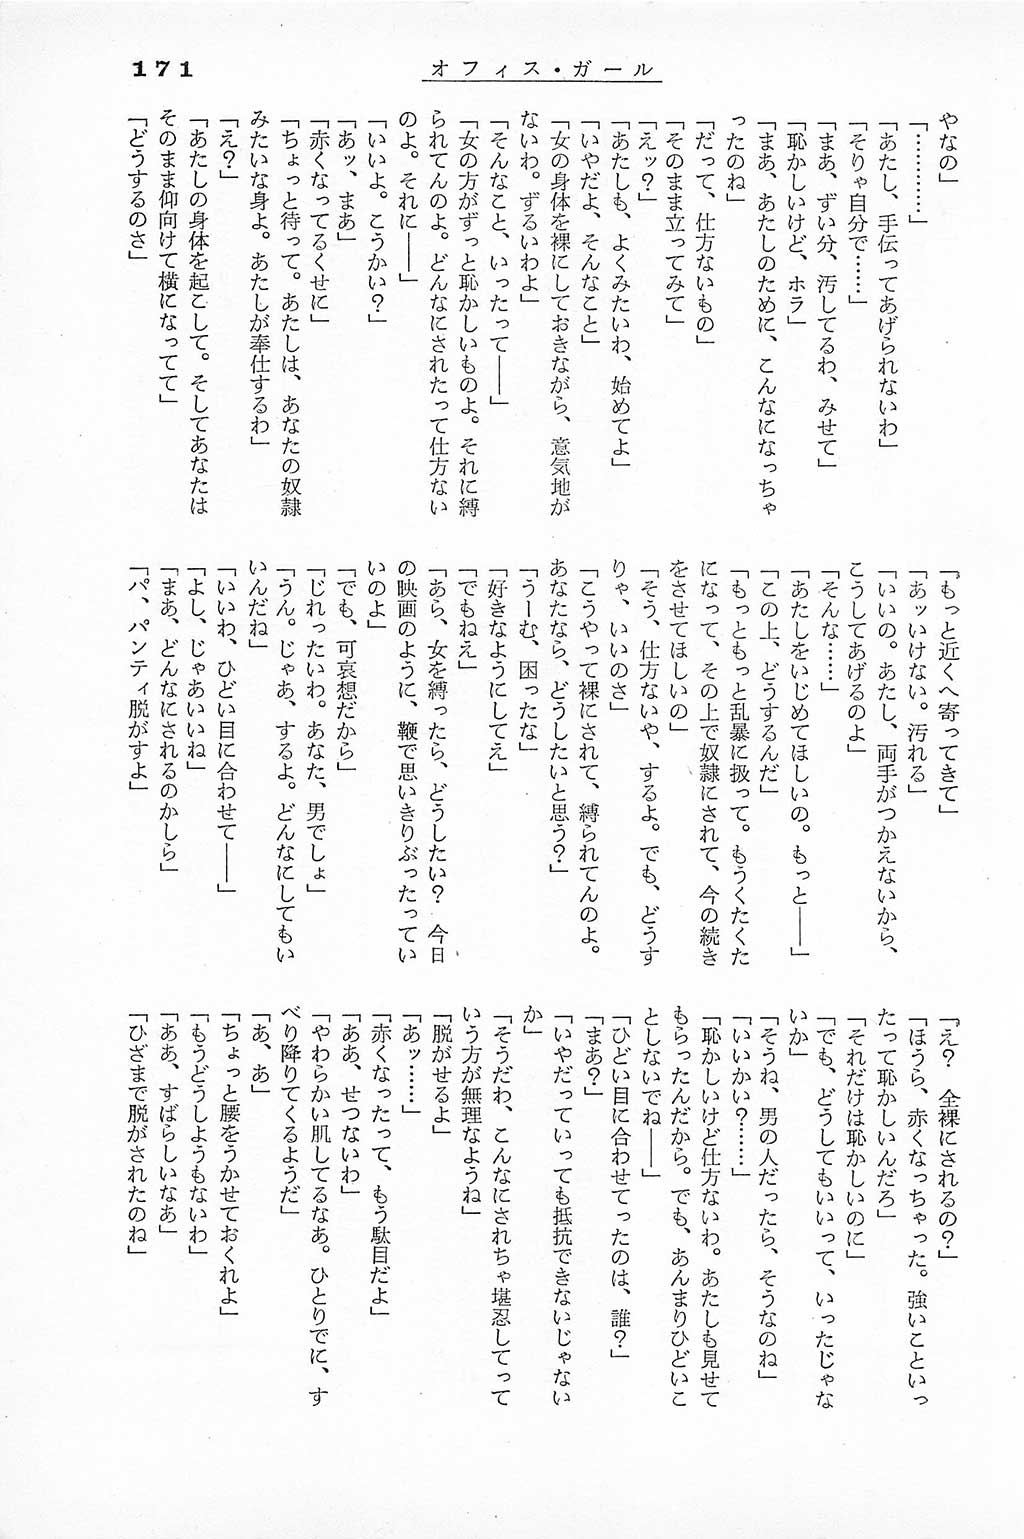 171
オフィス・ガール
やなの」
「…………」
「あたし、手伝ってあげられないわ」
「そりゃ自分で……」
「まあ、ずい分、汚してるわ、みせて」
「恥かしいけど、ホラ」
「まあ、あたしのために、こんなになっちゃ
ったのね」
「だって、仕方ないもの」
「そのまま立ってみて」
「えッ？」
「あたしも、よくみたいわ、始めてよ」
「いやだよ、そんなこと」
「女の身体を裸にしておきながら、意気地が
ないわ。ずるいわよ」
「そんなこと、いったって――」
「女の方がずっと恥かしいものよ。それに縛
られてんのよ。どんなにされたって仕方ない
のよ。それに――」
「いいよ。こうかい？」
「あッ、まあ」
「赤くなってるくせに」
「ちょっと待って。あたしは、あなたの奴隷
みたいな身よ。あたしが奉仕するわ」
「え？」
「あたしの身体を起こして。そしてあなたは
そのまま仰向けて横になってて」
「どうするのさ」
「もっと近くへ寄ってきて」
「あッいけない。汚れる」
「いいの。あたし、両手がつかえないから、
こうしてあげるのよ」
「そんな……」
「あたしをいじめてほしいの。もっと――」
「この上、どうするんだ」
「もっともっと乱暴に扱って。もうくたくた
になって、その上で奴隷にされて、今の続き
をさせてほしいの」
「そう、仕方ないや、するよ。でも、どうす
りゃ、いいのさ」
「こうやって裸にされて、縛られてんのよ。
あなたなら、どうしたいと思う？」
「うーむ、困ったな」
「好きなようにしてえ」
「でもねえ」
「あら、女を縛ったら、どうしたい？　今日
の映画のように、鞭で思いきりぶったってい
いのよ」
「でも、可哀想だから」
「じれったいわ。あなた、男でしょ」
「うん。じゃあ、するよ。どんなにしてもい
いんだね」
「いいわ、ひどい目に合わせて――」
「よし、じゃあいいね」
「まあ、どんなにされるのかしら」
「パ、パンティ脱がすよ」
「え？　全裸にされるの？」
「ほうら、赤くなっちゃった。強いこといっ
たって恥かしいんだろ」
「それだけは恥かしいのに」
「でも、どうしてもいいって、いったじゃな
いか」
「そうね、男の人だったら、そうなのね」
「いいかい？……」
「恥かしいけど仕方ないわ。あたしも見せて
もらったんだから。でも、あんまりひどいこ
としないでね――」
「ひどい目に合わせてったのは、誰？」
「まあ？」
「いやだっていっても抵抗できないじゃない
か」
「そうだわ、こんなにされちゃ堪忍してって
いう方が無理なようね」
「脱がせるよ」
「あッ……」
「赤くなったって、もう駄目だよ」
「ああ、せつないわ」
「やわらかい肌してるなあ。ひとりでに、す
べり降りてくるようだ」
「あ、あ」
「ちょっと腰をうかせておくれよ」
「もうどうしようもないわ」
「ああ、すばらしいなあ」
「ひざまで脱がされたのね」